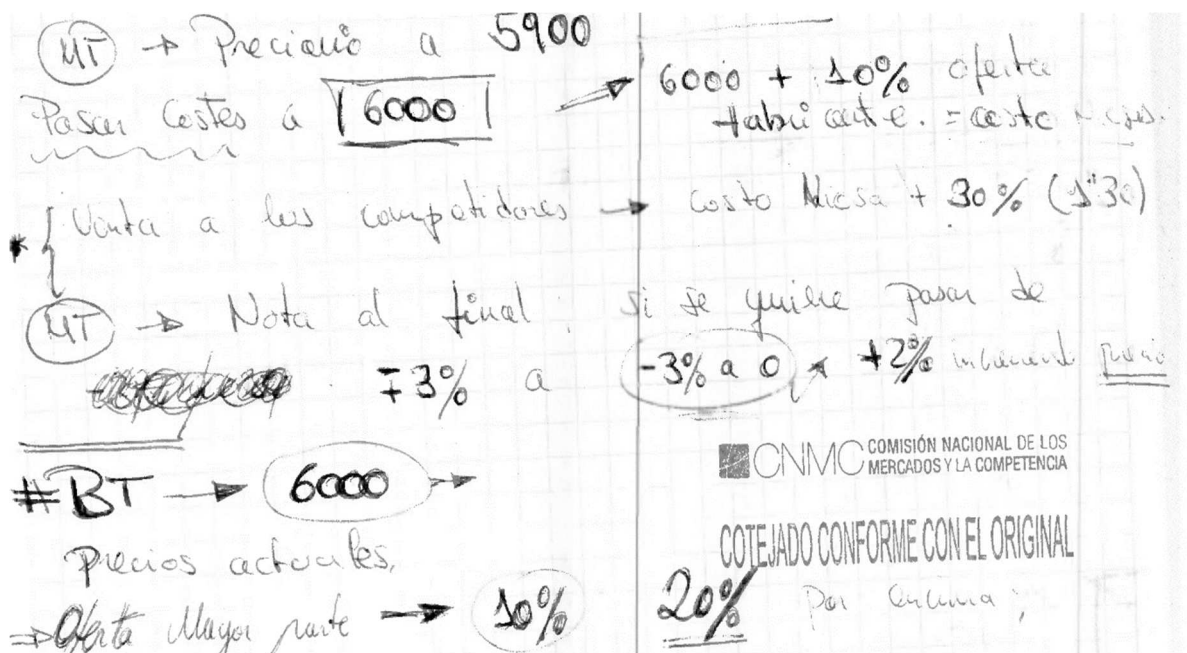 MT → Preciario a 5900
Pasar Costes a 6000 ⇒ 6000 + 10% oferta
fabricante. = costo
Venta a los competidores → costo Nicsa + 30% (1"30)
MT → Nota al final. Si se quiere pasar de
∓3% a -3% a 0 +2% incremento precio
#BT → 6000 →
CNMC COMISIÓN NACIONAL DE LOS
MERCADOS Y LA COMPETENCIA
COTEJADO CONFORME CON EL ORIGINAL
Precios actuales.
⇒ Oferta Mayor parte → 10% 20% por encima